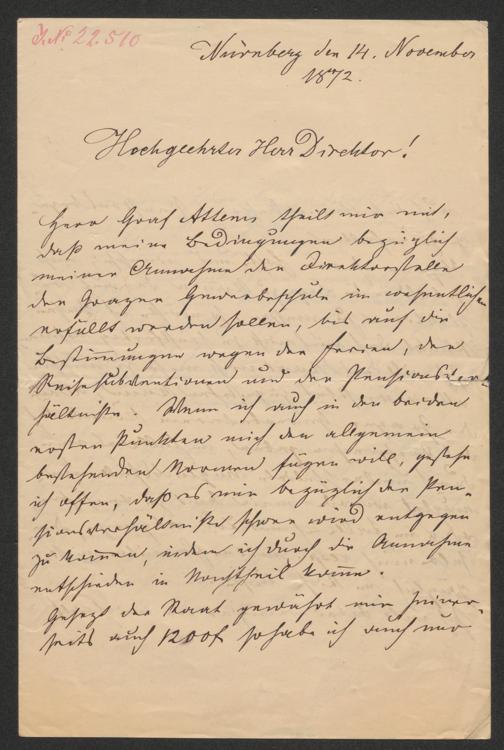 J. No 22.510
Nürnberg den 14. November
1872.
Hochgeehrter Herr Direktor!
Herr Graf Attems theilt mir mit,
daß meine Bedingungen bezüglich
meiner Annahme der Direktorstelle
der Grazer Gewerbeschule im wesentlichen
erfüllt werden sollen, bis auf die
Bestimmungen wegen der Ferien, der
Reisesubventionen und der Pensionsver-
hältnisse. Wenn ich auch in den beiden
ersten Punkten mich den allgemein
bestehenden Normen fügen will, gestehe
ich offen, daß es mir bezüglich der Pen-
sionsverhältnisse schwer wird entgegen
zu kommen, indem ich durch die Annahme
entschieden in Nachtheil komme.
Gesetzt der Staat gewährt mir seiner-
seits auch 1200f so habe ich auch nur